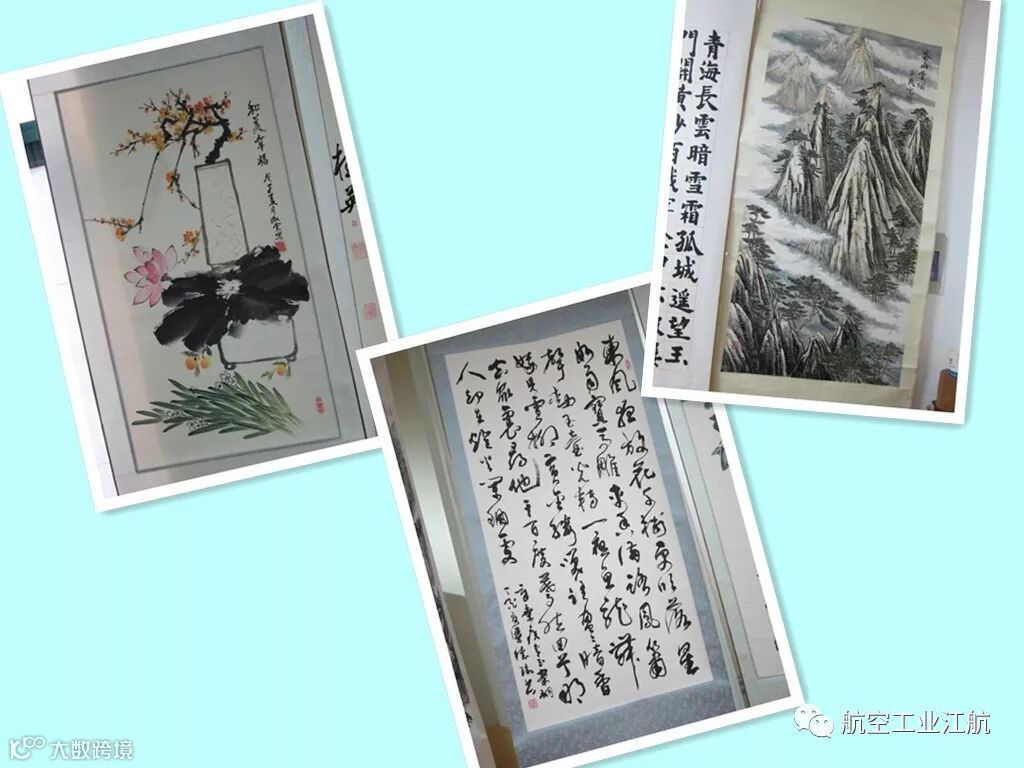 和美幸福
青海長雲暗雪霜孤城遥望玉
門關黄沙百戰
東風夜放花千樹更吹落星
如雨寶馬雕車香滿路鳳簫
聲動玉壺光轉一夜魚龍舞
蛾兒雪柳黄金縷笑語盈盈暗香
去眾裏尋他千百度驀然回首那
人却在燈火闌珊處
航空工业江航
大数跨境